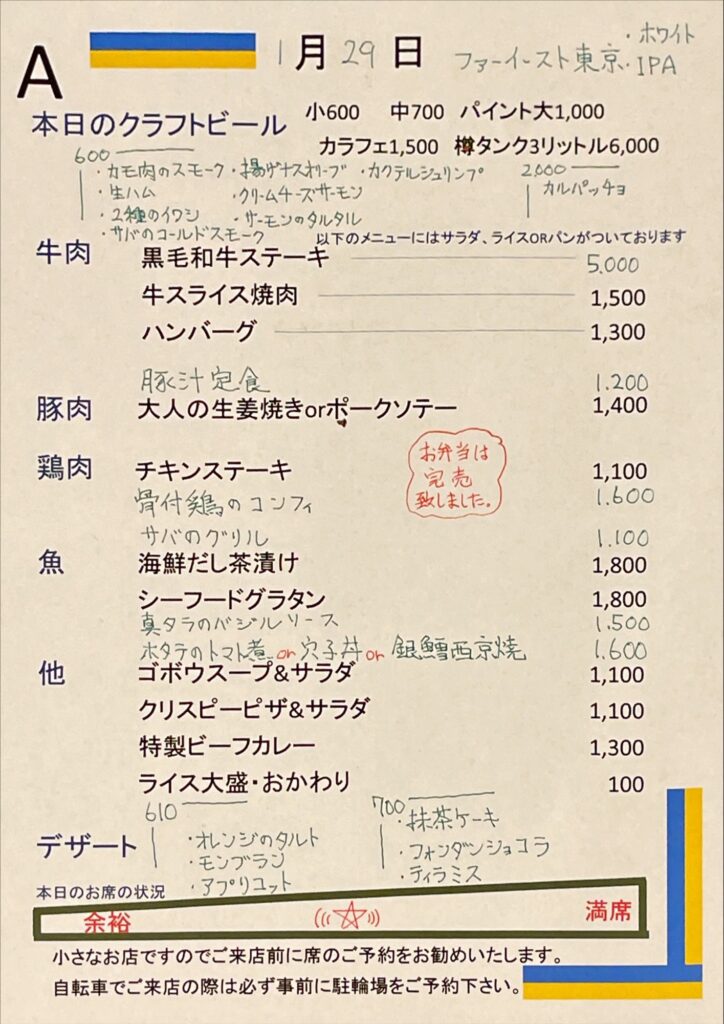 A
1月29日
ファーイースト東京・ホワイト
・IPA
本日のクラフトビール 小600 中700 パイント大1,000
カラフェ1,500 樽タンク3リットル6,000
600
・カモ肉のスモーク ・揚げナスオリーブ ・カクテルシュリンプ
・生ハム ・クリームチーズサーモン
・2種のイワシ ・サーモンのタルタル
・サバのコールドスモーク
2,000
カルパッチョ
以下のメニューにはサラダ、ライスORパンがついております
牛肉 黒毛和牛ステーキ 5,000
牛スライス焼肉 1,500
ハンバーグ 1,300
豚汁定食 1.200
豚肉 大人の生姜焼きorポークソテー 1,400
お弁当は
完売
致しました。
鶏肉 チキンステーキ 1,100
骨付鶏のコンフィ 1.600
サバのグリル 1.100
魚 海鮮だし茶漬け 1,800
シーフードグラタン 1,800
真タラのバジルソース 1.500
ホタテのトマト煮or穴子丼or銀鱈西京焼 1.600
他 ゴボウスープ&サラダ 1,100
クリスピーピザ&サラダ 1,100
特製ビーフカレー 1,300
ライス大盛・おかわり 100
デザート
610
・オレンジのタルト
・モンブラン
・アプリコット
700
・抹茶ケーキ
・フォンダンショコラ
・ティラミス
本日のお席の状況
余裕 満席
小さなお店ですのでご来店前に席のご予約をお勧めいたします。
自転車でご来店の際は必ず事前に駐輪場をご予約下さい。